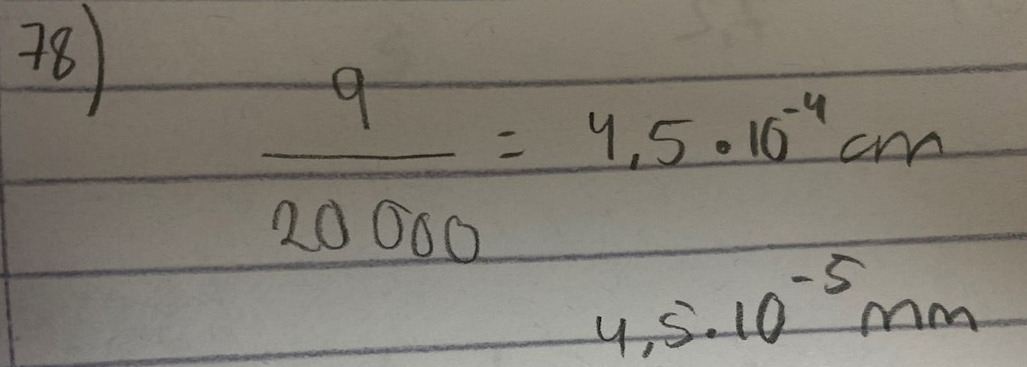 78)
9
20 000 = 4,5 · 10⁻⁴ cm
4,5 · 10⁻⁵ mm